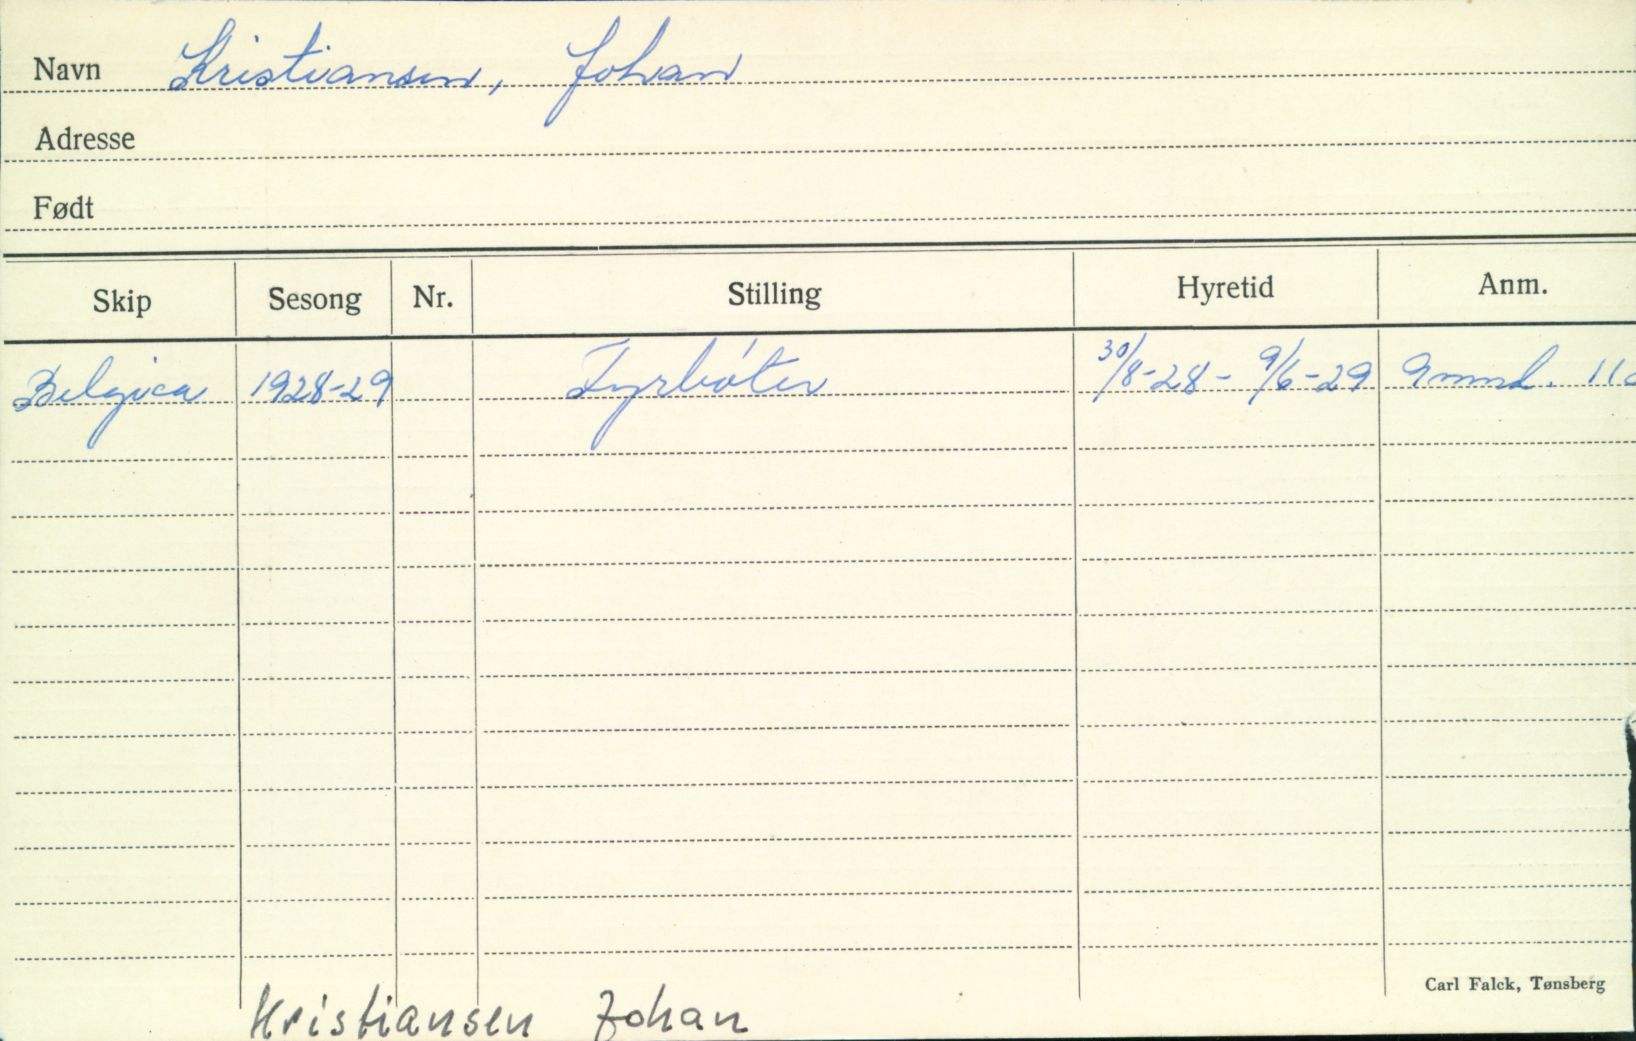 Navn Kristiansen, Johan
Adresse
Født
Skip Sesong Nr. Stilling Hyretid Anm.
Belgica 1928-29 Fyrbøter 30/8-28 - 9/6-29 9 mnd.
Carl Falck, Tønsberg
Kristiansen Johan